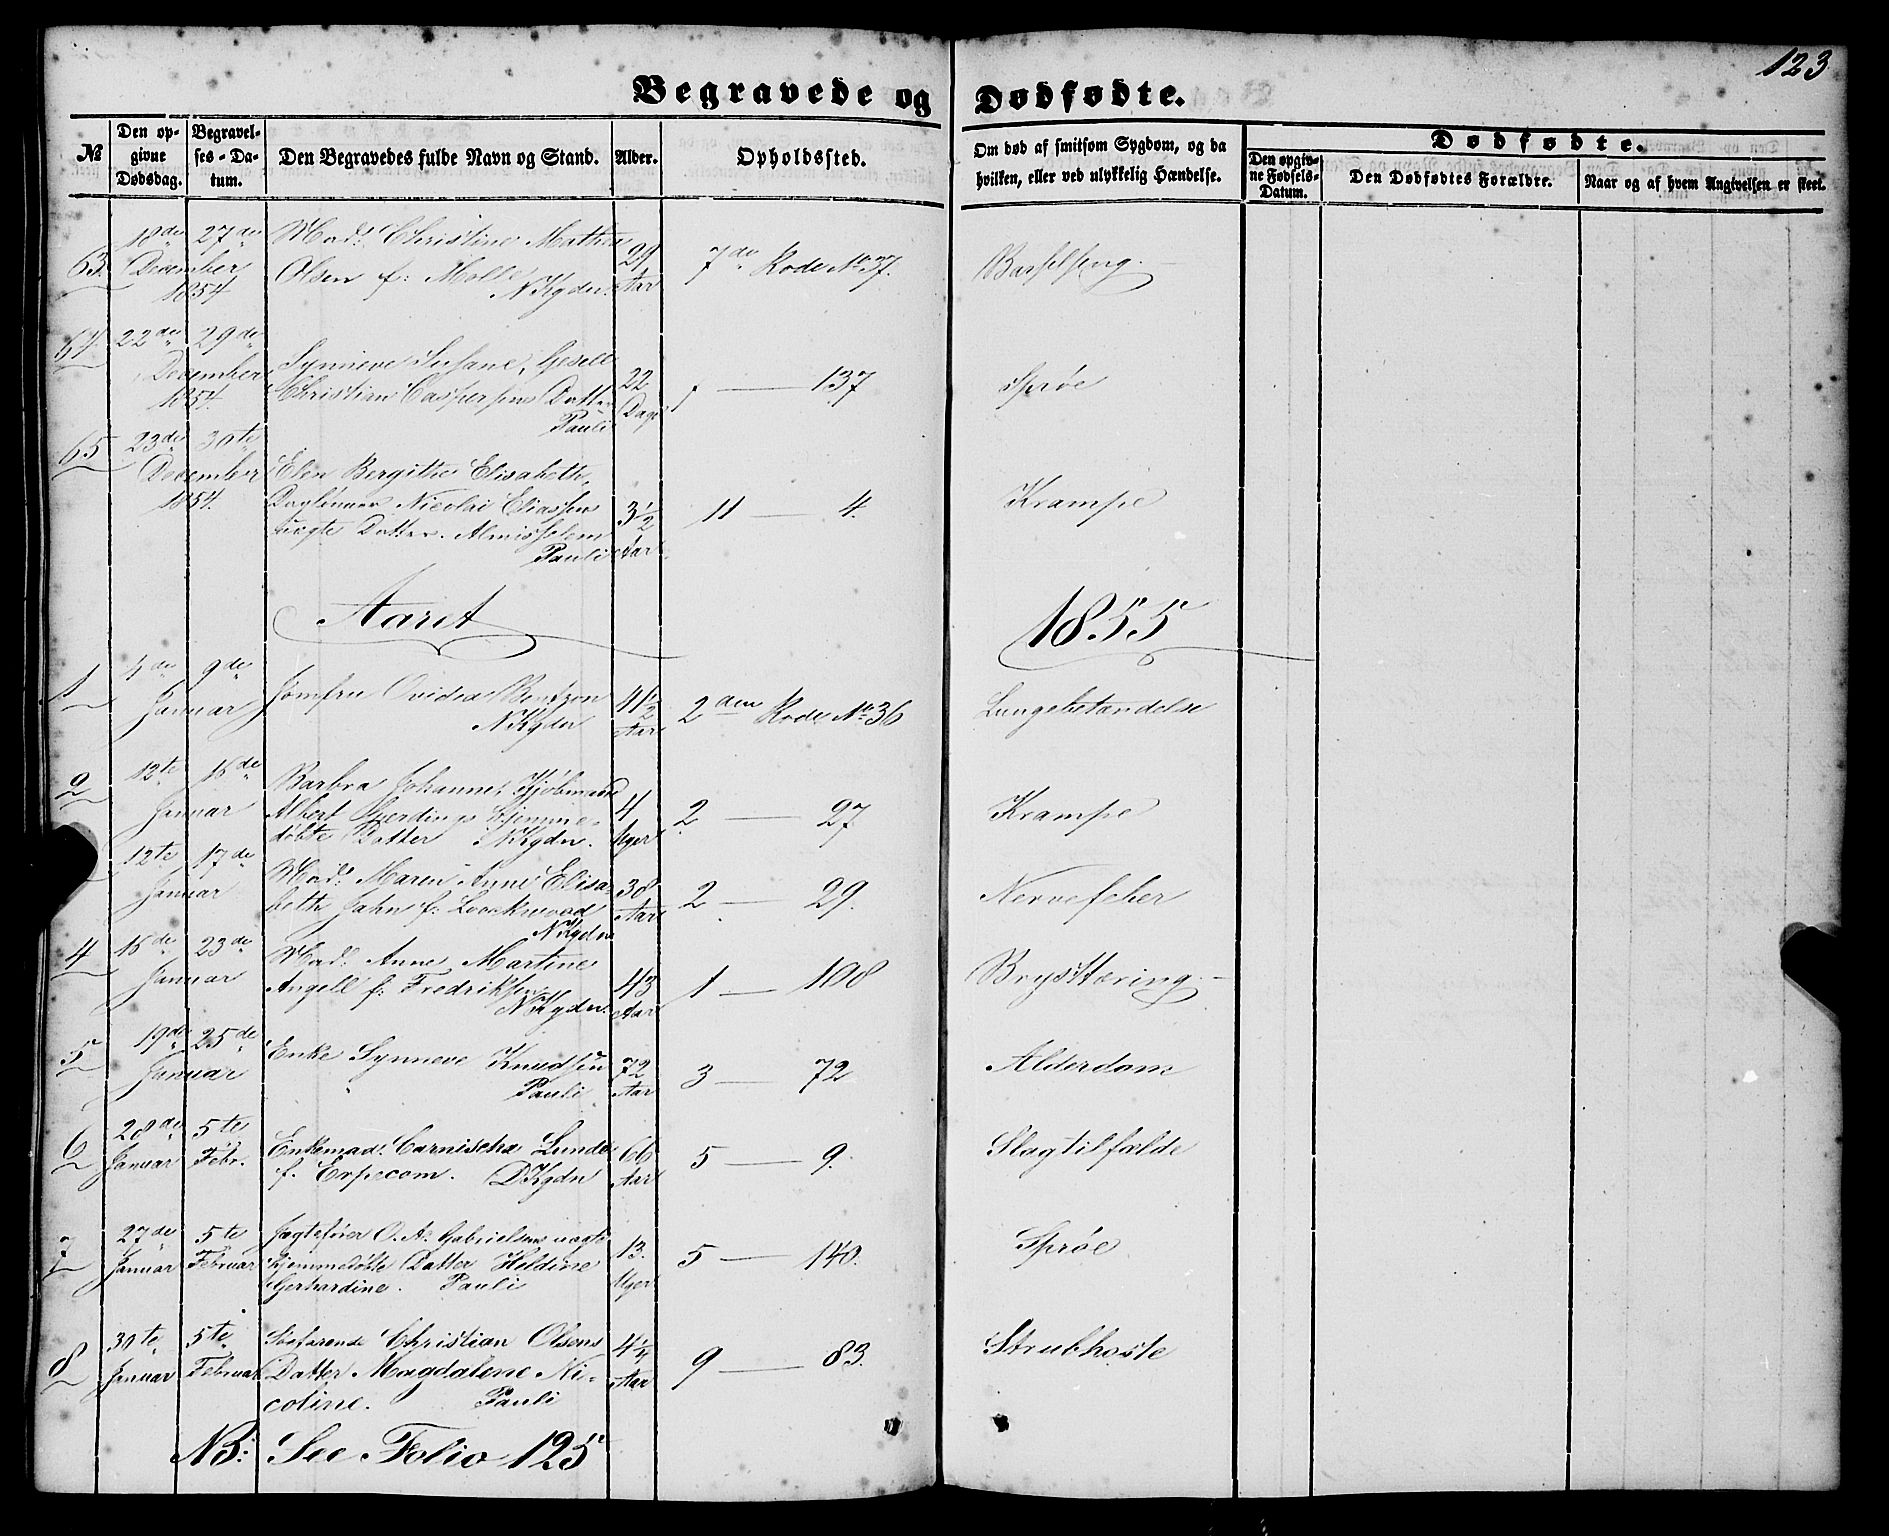 123
Begravede og Dødfødte.
№
Den op-
givne
Dødsdag.
Begravel-
ses-Da-
tum.
Den Begravedes fulde Navn og Stand.
Alder.
Opholdssted.
Om død af smitsom Sygdom, og da
hvilken, eller ved ulykkelig Hændelse.
Dødfødte.
Den opgiv-
ne Fødsels-
Datum.
Den Dødfødtes Forældre.
Naar og af hvem Angivelsen er skeet.
63. 18de 27de December 1854
Mad. Christine Mathea
Olsen f: Molle NKgdn.
29 Aar
7de Rode No 37.
Barselseng.
64. 22de 29de December 1854.
Synneve Susane, Gesell
Christian Caspersens Datter
Pauli
22 Dage
1 — 137
Sprøe
65 23de 30te December 1854.
Elen Bergithe Elisabeth,
Daglönner Nicolai Eliassen
uægte Datter.
Pauli
3½ Aar
11 — 4.
Krampe
Aaret 1855
1 4de 9de Januar
Jomfru Ovidia Bentzon
NKgdn
41½ Aar
2den Rode No 36
Lungebetændelse
2 12te 16de Januar
Barbra Johanne, Kjöbmand
Albert Gjerdings hjemme-
döbte Datter NKgdn.
4 Uger
2 — 27
Krampe
12te 17de Januar
Mad. Maren Anne Elisa-
beth Jahn f: Loockwood
NKgdn
38 Aar
2 — 29.
Nervefeber
4 16de 23de Januar
Mad. Anne Martine
Angell f: Fredriksen
NKgdn.
43 Aar
1 — 108
Brysttæring
5 19de 25de Januar
Enke Synneve Knudsen
Pauli
72 Aar
3 — 72
Alderdom
6 28de Januar 5te Febr.
Enkemad. Carnischa Lunde
f. Erpecom. DKgdn
66 Aar
5 — 9.
Slagtilfælde
7 27de Januar 5te Februar
Jagtefører O. A. Gabrielsens uægte
hjemmedöbte Datter Heldine
Gjerhardine. Pauli
13. Uger
5 — 140.
Sprøe
8 30te Januar 5te Februar
Søefarende Christian Olsens
Datter Magdalene Ni-
coline. Pauli
4¼ Aar
9 — 83.
Strubhoste
NB: See Folio 125